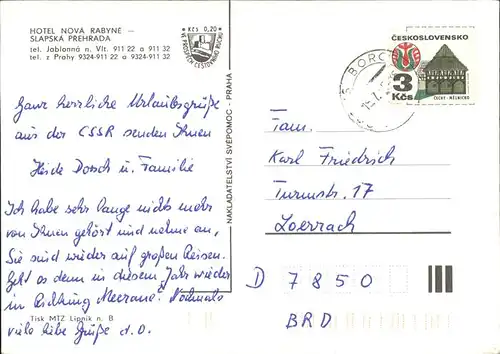 HOTEL NOVÁ RABYNĚ –
SLAPSKÁ PŘEHRADA
tel. Jablonná n. Vlt. 911 22 a 911 32
tel. z Prahy 9324-911 22 a 9324-911 32
Kčs 0,20
VE PROSPĚCH CESTOVNÍHO RUCHU
Ganz herrliche Urlaubsgrüße
aus der CSSR senden Ihnen
Heide Dorsch u. Familie
Ich habe sehr lange nichts mehr
von Ihnen gehört und nehme an,
Sie sind wieder auf großen Reisen.
Geht es denn in diesem Jahr wieder
in Richtung Meerane? Nochmals
viele liebe Grüße d. O.
Tisk MTZ Lipník n. B
NAKLADATELSTVÍ SVÉPOMOC - PRAHA
BORO
ČESKOSLOVENSKO
3
Kčs
ČECHY - MĚLNICKO
Fam.
Karl Friedrich
Turmstr. 17
Loerrach
D 7850
BRD